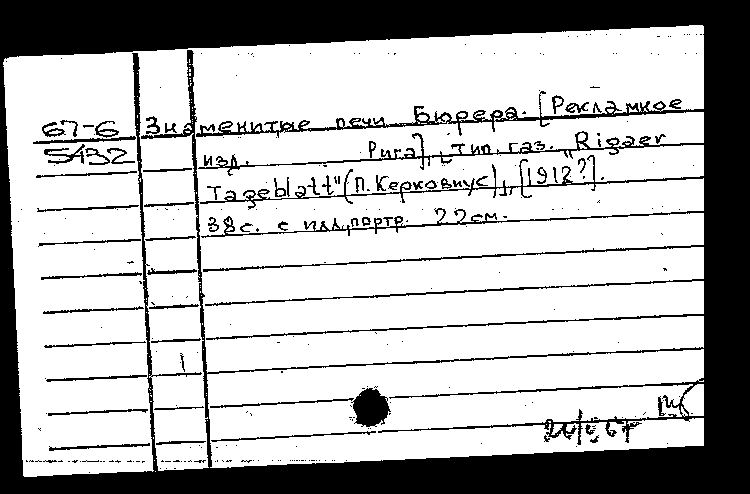 67-6 Знаменитые печи Бюрера. [Рекламное
5432 изд. Рига], тип. газ. „Rigaer
Tageblatt" (П. Керковиус), [1912?].
38 с. с илл., портр. 22 см.
1